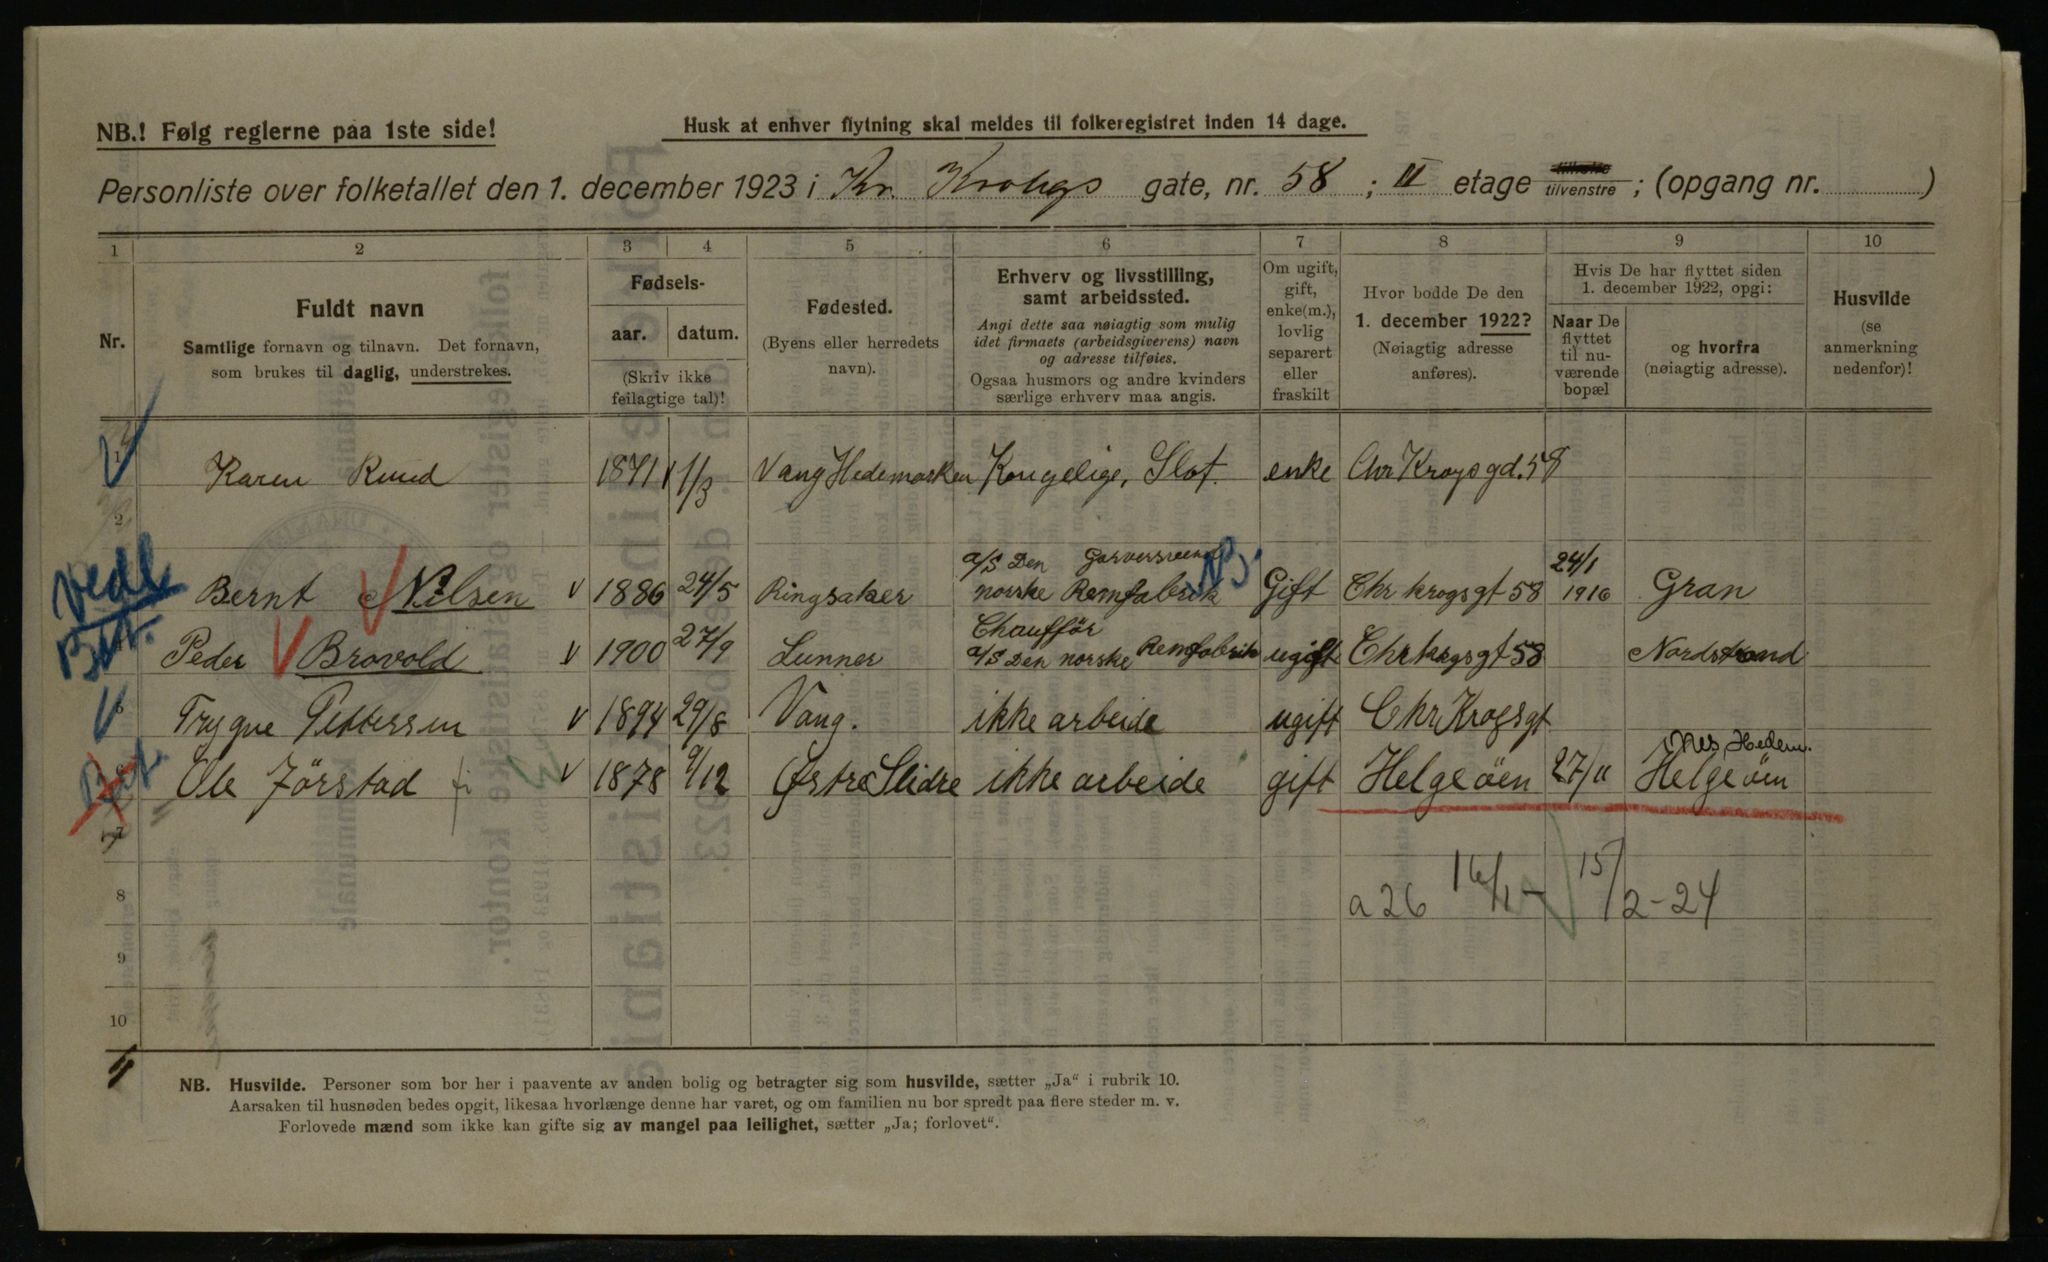 NB.! Følg reglerne paa 1ste side!
Husk at enhver flytning skal meldes til folkeregistret inden 14 dage.
Personliste over folketallet den 1. december 1923 i Kr. Krohgs gate, nr. 58 ; II etage tilvenstre ; (opgang nr. )
1 2 3 4 5 6 7 8 9 10
Nr.
Fuldt navn
Samtlige fornavn og tilnavn. Det fornavn,
som brukes til daglig, understrekes.
Fødsels-
aar. datum.
(Skriv ikke
feilagtige tal)!
Fødested.
(Byens eller herredets
navn).
Erhverv og livsstilling,
samt arbeidssted.
Angi dette saa nøiagtig som mulig
idet firmaets (arbeidsgiverens) navn
og adresse tilføies.
Ogsaa husmors og andre kvinders
særlige erhverv maa angis.
Om ugift,
gift,
enke(m.),
lovlig
separert
eller
fraskilt
Hvor bodde De den
1. december 1922?
(Nøiagtig adresse
anføres).
Hvis De har flyttet siden
1. december 1922, opgi:
Naar De
flyttet
til nu-
værende
bopæl
og hvorfra
(nøiagtig adresse).
Husvilde
(se
anmerkning
nedenfor)!
1 Karen Ruud 1871 1/3 Vang Hedemarken Kongelige, Slot. enke Chr Krogs gd. 58
2
a/s Den 24/1
Bernt Nilsen v 1886 24/5 Ringsaker norske Remfabrik Gift Chr krogs gt 58 1916 Gran
NB.
Vedl
Bet.
Chaufför
Peder Brovold v 1900 27/9 Lunner a/s Den norske Remfabrik ugift Chr krogs gt 58 Nordstrand
Trygve Pettersen v 1894 29/8 Vang. ikke arbeide ugift Chr Krogs gt
Nes Hedem.
Bet. Ole Jörstad v 1878 9/12 Østre Slidre ikke arbeide gift Helgeöen 27/11 Helgeöen
7
8 a 26 16/1 - 15/2-24
9
10
NB. Husvilde. Personer som bor her i paavente av anden bolig og betragter sig som husvilde, sætter „Ja“ i rubrik 10.
Aarsaken til husnøden bedes opgit, likesaa hvorlænge denne har varet, og om familien nu bor spredt paa flere steder m. v.
Forlovede mænd som ikke kan gifte sig av mangel paa leilighet, sætter „Ja; forlovet“.